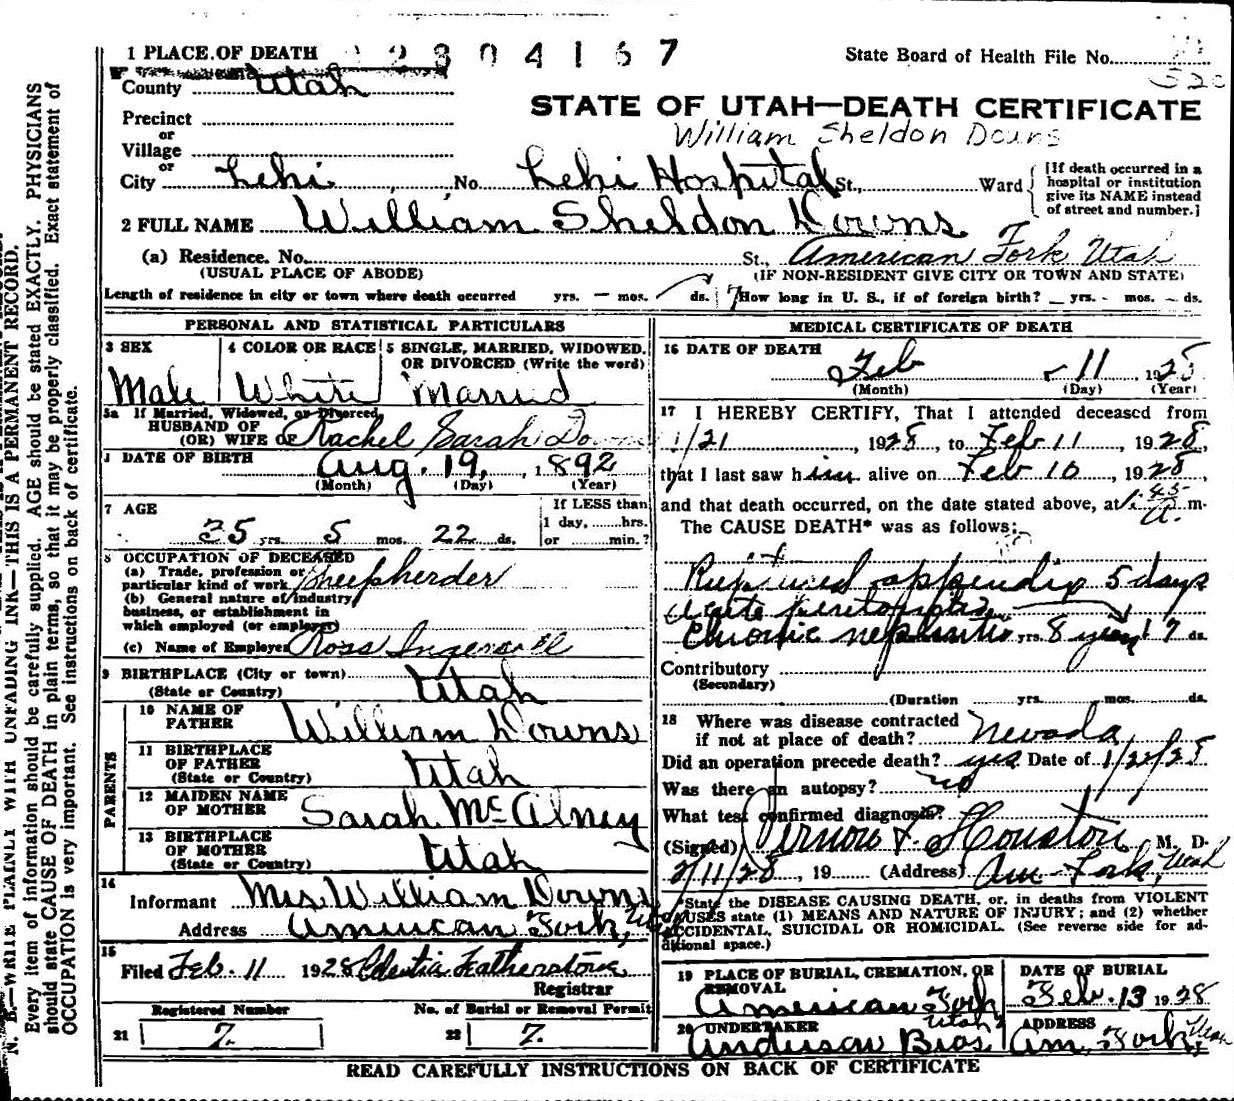 1 PLACE OF DEATH 2804167 State Board of Health File No.
County Utah
STATE OF UTAH—DEATH CERTIFICATE
Precinct
William Sheldon Downs
or
Village
or
City Lehi No. Lehi Hospital St., Ward
[If death occurred in a hospital or institution give its NAME instead of street and number.]
2 FULL NAME William Sheldon Downs
(a) Residence. No. St., American Fork Utah
(USUAL PLACE OF ABODE) (IF NON-RESIDENT GIVE CITY OR TOWN AND STATE)
Length of residence in city or town where death occurred yrs. — mos. ds. 17 How long in U. S., if of foreign birth? yrs. - mos. - ds.
PERSONAL AND STATISTICAL PARTICULARS
3 SEX
Male
4 COLOR OR RACE
White
5 SINGLE, MARRIED, WIDOWED, OR DIVORCED (Write the word)
Married
5a If Married, Widowed, or Divorced,
HUSBAND OF
(OR) WIFE OF Rachel Sarah Downs
DATE OF BIRTH Aug. 19, 1892
(Month) (Day) (Year)
7 AGE If LESS than
1 day, hrs.
35 yrs. 5 mos. 22 ds. or min.?
8 OCCUPATION OF DECEASED
(a) Trade, profession or
particular kind of work Sheepherder
(b) General nature of industry
business, or establishment in
which employed (or employer)
(c) Name of Employer Ross Ingersoll
9 BIRTHPLACE (City or town)
(State or Country) Utah
PARENTS
10 NAME OF
FATHER William Downs
11 BIRTHPLACE
OF FATHER
(State or Country) Utah
12 MAIDEN NAME
OF MOTHER Sarah McAlney
13 BIRTHPLACE
OF MOTHER
(State or Country) Utah
14
Informant Mrs. William Downs
Address American Fork, Utah
15
Filed Feb. 11 1928 Celestia Featherstone
Registrar
Registered Number No. of Burial or Removal Permit
21 7. 22 7.
MEDICAL CERTIFICATE OF DEATH
16 DATE OF DEATH
Feb 11 1928
(Month) (Day) (Year)
17 I HEREBY CERTIFY, That I attended deceased from
1/21 1928, to Feb 11, 1928,
that I last saw him alive on Feb 10, 1928
and that death occurred, on the date stated above, at 1:45 A. m.
The CAUSE DEATH* was as follows:
Ruptured appendix 5 days
acute peritonitis
Chronic nephritis yrs. 8 years 17 ds.
Contributory
(Secondary)
(Duration yrs. mos. ds.
18 Where was disease contracted
if not at place of death? Nevada
Did an operation precede death? yes Date of 1/22/28
Was there an autopsy? no
What test confirmed diagnosis?
(Signed) Vernon F. Houston, M. D.
2/11/28, 19 (Address) Am. Fork, Utah
*State the DISEASE CAUSING DEATH, or, in deaths from VIOLENT
CAUSES state (1) MEANS AND NATURE OF INJURY; and (2) whether
ACCIDENTAL, SUICIDAL OR HOMICIDAL. (See reverse side for ad-
ditional space.)
19 PLACE OF BURIAL, CREMATION, OR
REMOVAL
American Fork
Utah
DATE OF BURIAL
Feb. 13 1928
20 UNDERTAKER
Anderson Bros
ADDRESS
Am. Fork, Utah
READ CAREFULLY INSTRUCTIONS ON BACK OF CERTIFICATE
N. B.—WRITE PLAINLY WITH UNFADING INK—THIS IS A PERMANENT RECORD.
Every item of information should be carefully supplied. AGE should be stated EXACTLY. PHYSICIANS
should state CAUSE OF DEATH in plain terms, so that it may be properly classified. Exact statement of
OCCUPATION is very important. See instructions on back of certificate.